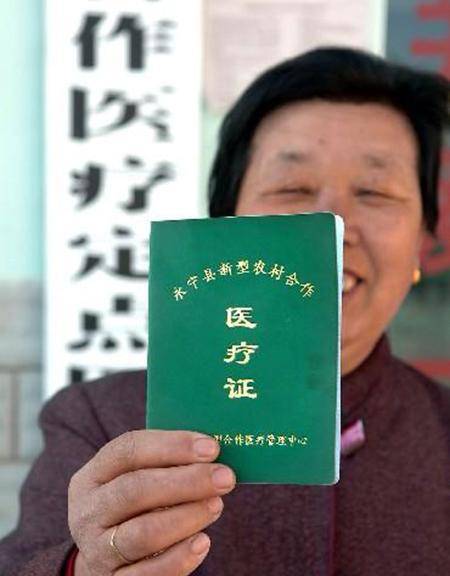 作医疗定点
永宁县新型农村合作
医疗证
型合作医疗管理中心